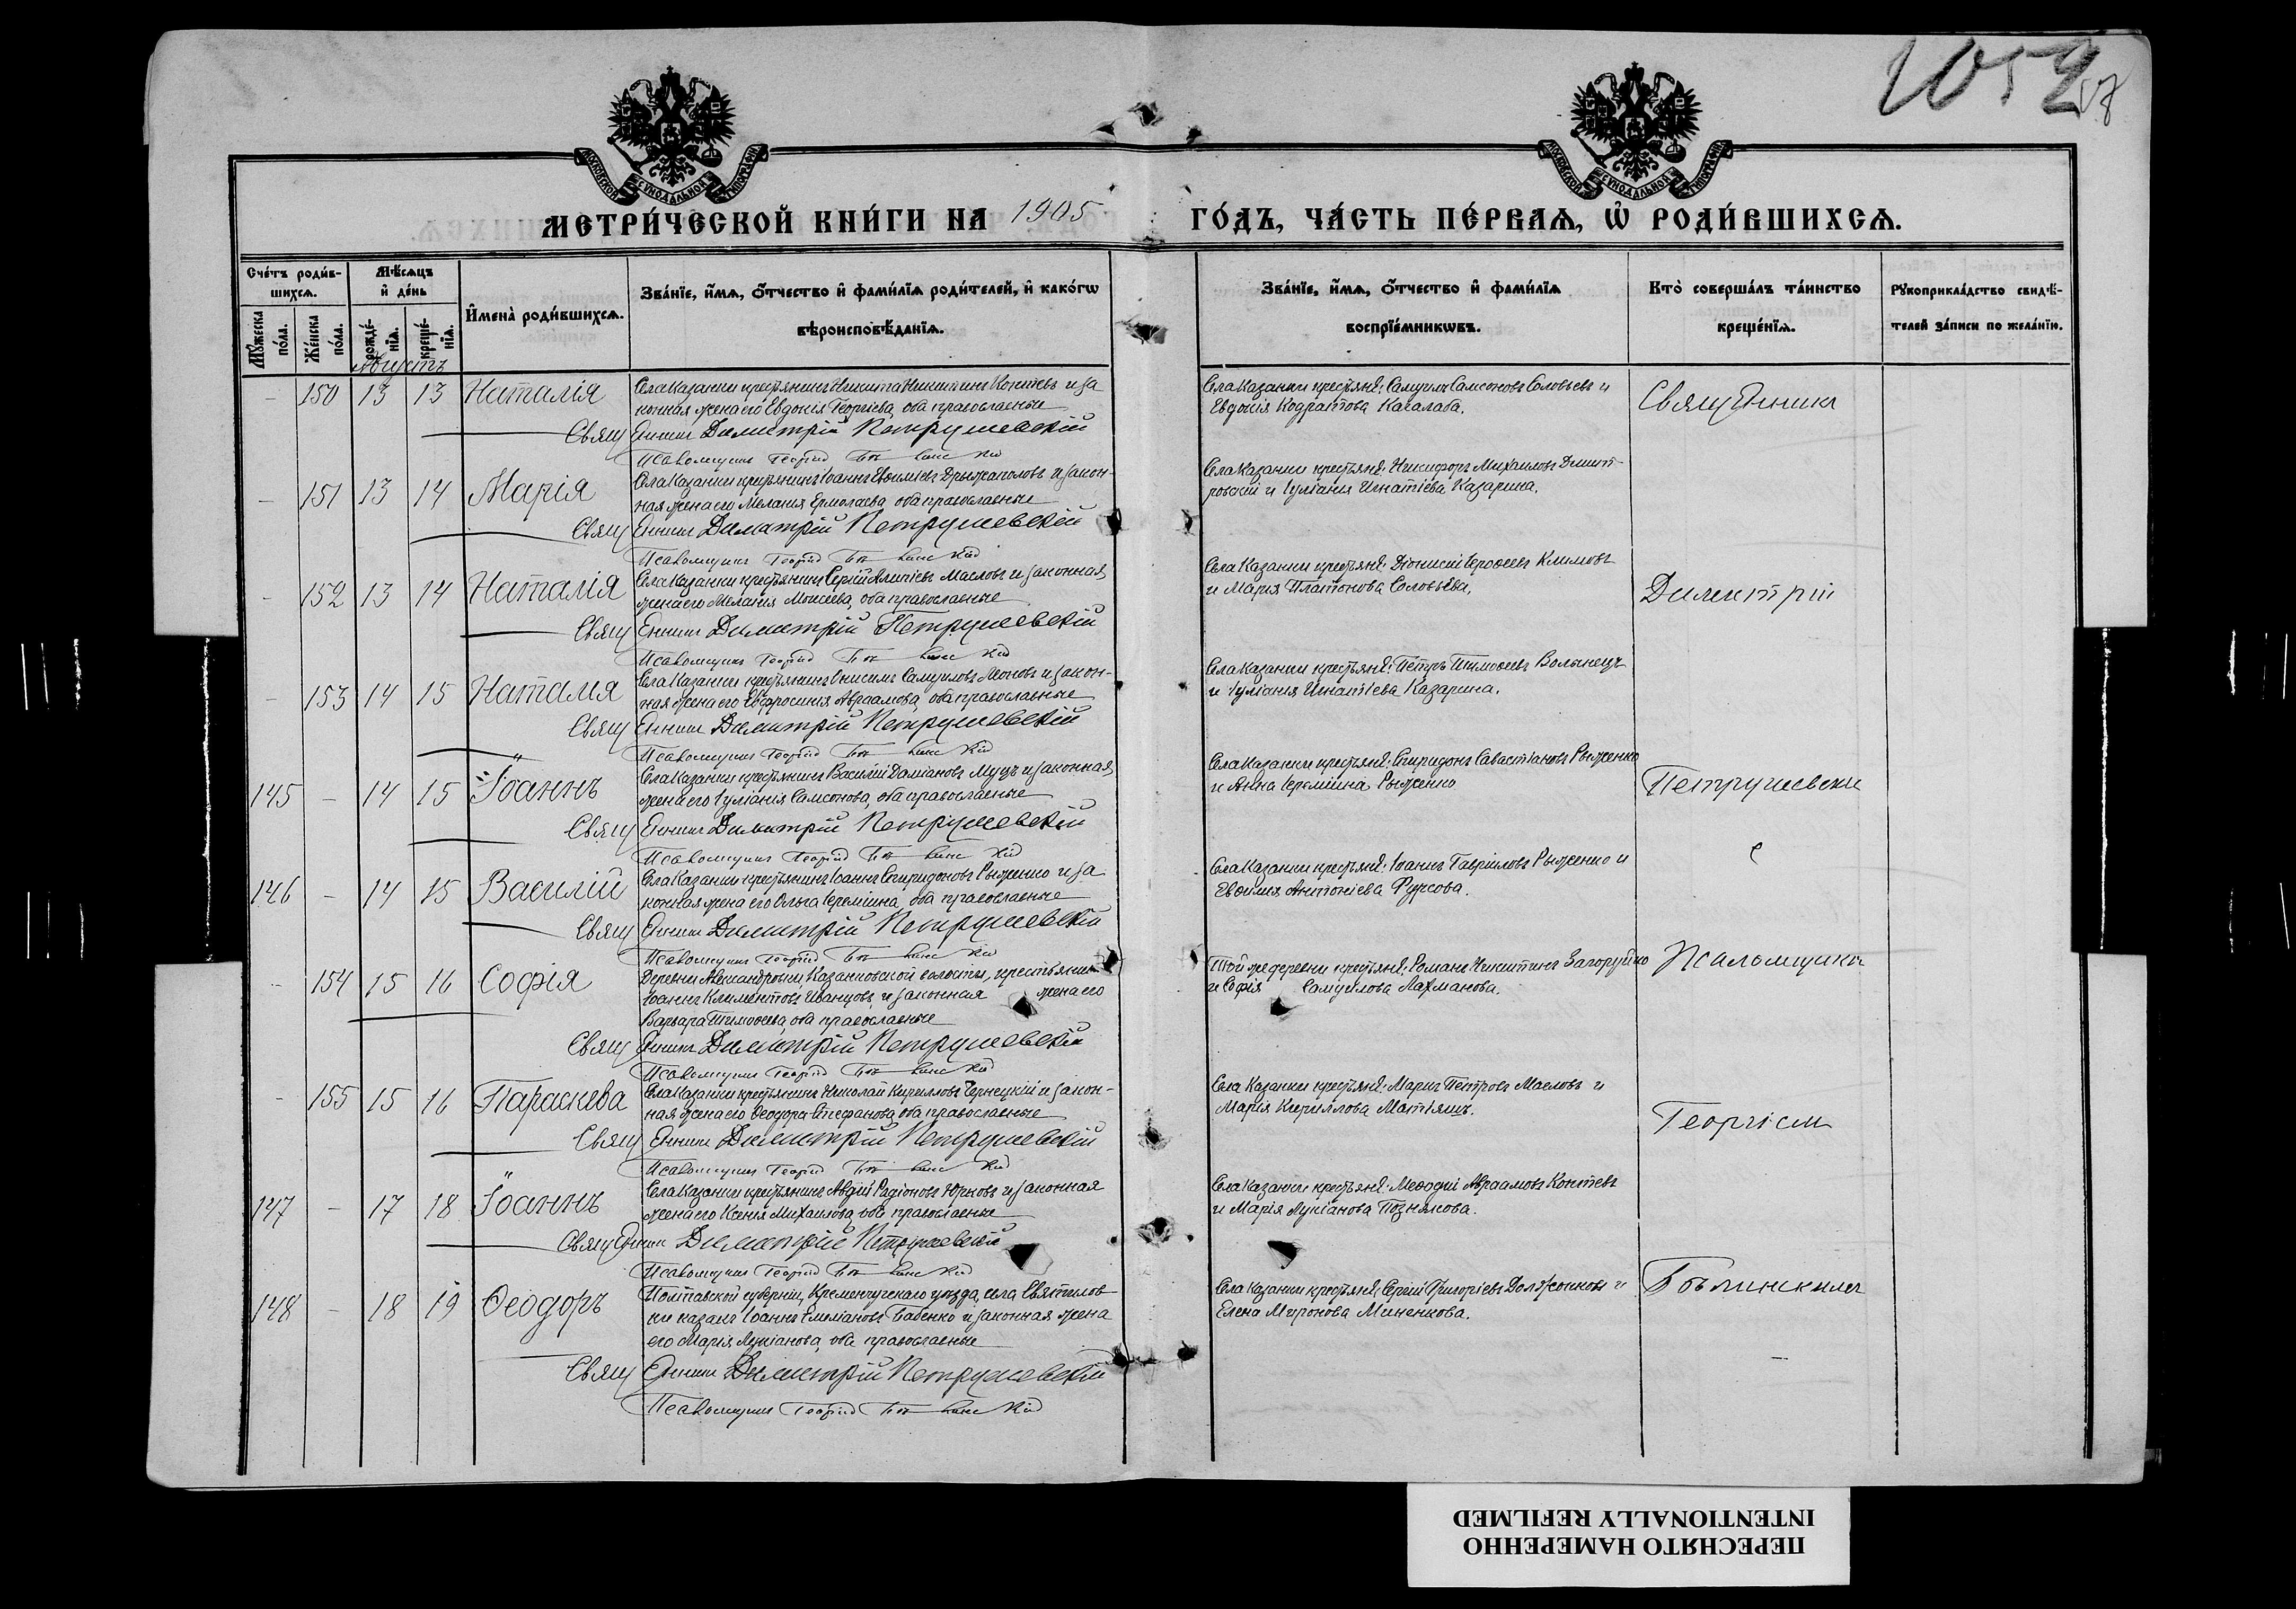 1052
57
МОСКОВСКОЙ СѴНОДАЛЬНОЙ ТИПОГРАФІИ
МОСКОВСКОЙ СѴНОДАЛЬНОЙ ТИПОГРАФІИ
МЕТРИ́ЧЕСКОЙ КНИ́ГИ НА 1905 ГО́ДЪ, ЧА́СТЬ ПЕ́РВАѦ, Ѡ҆ РОДИ́ВШИХСѦ.
Сче́тъ роди́в-
шихсѧ.
Мꙋ́жеска по́ла.
Же́нска по́ла.
Мѣ́сѧцъ
и҆ де́нь
рожде́-нїѧ.
креще́-нїѧ.
И҆мена̀ роди́вшихсѧ.
Зва́нїе, и҆́мѧ, ѻ҆́тчество и҆ фами́лїѧ роди́телей, и҆ како́гѡ
вѣроисповѣ́данїѧ.
Зва́нїе, и҆́мѧ, ѻ҆́тчество и҆ фами́лїѧ
воспрїе́мникѡвъ.
Кто̀ соверша́лъ та́инство
креще́нїѧ.
Рꙋкоприкла́дство свидѣ́-
телей за́писи по жела́нїю.
Августъ
- 150 13 13 Наталія
Села Казанки крестьянинъ Никита Никитинъ Коптевъ и за
конная жена его Евдокія Георгіева, оба православные
Села Казанки крестьяне: Самуилъ Самсоновъ Соловьевъ и
Евдокія Кодратова Качалаба.
Священникъ
Священникъ Димитрій Петрушевскій
Псаломщикъ Георгій
- 151 13 14 Марія
Села Казанки крестьянинъ Іоаннъ Евфиміевъ Дрыжаполовъ и закон-
ная жена его Мелания Ермолаева, оба православные
Села Казанки крестьяне: Никифоръ Михаиловъ Дмит-
ровскій и Іуліанія Игнатіева Казарина.
Священникъ Димитрій Петрушевскій
Псаломщикъ Георгій
- 152 13 14 Наталія
Села Казанки крестьянинъ Сергій Алипіевъ Масловъ и законная
жена его Меланія Моисеева, оба православные
Села Казанки крестьяне: Діонисій Іерофеевъ Климовъ
и Марія Платонова Соловьева.
Димитрій
Священникъ Димитрій Петрушевскій
Псаломщикъ Георгій
- 153 14 15 Наталія
Села Казанки крестьянинъ Онисимъ Самуиловъ Леоновъ и закон-
ная жена его Евфросинія Авраамова, оба православные
Села Казанки крестьяне: Петръ Тимофеевъ Волынецъ
и Іуліанія Игнатіева Казарина.
Священникъ Димитрій Петрушевскій
Псаломщикъ Георгій
145 - 14 15 Іоаннъ
Села Казанки крестьянинъ Василій Даміановъ Муцъ и законная
жена его Іуліанія Самсонова, оба православные
Села Казанки крестьяне: Спиридонъ Савастіановъ Рыженко
и Анна Іереміина Рыженко
Петрушевскі
Священникъ Димитрій Петрушевскій
Псаломщикъ Георгій
146 - 14 15 Василій
Села Казанки крестьянинъ Іоаннъ Спиридоновъ Рыженко и за
конная жена его Ольга Іереміина, оба православные
Села Казанки крестьяне: Іоаннъ Гавріиловъ Рыженко и
Антоніева Фурсова.
с
Священникъ Димитрій Петрушевскій
Псаломщикъ Георгій
- 154 15 16 Софія
Деревни Александровки, Казанковской волости, крестьянинъ
Іоаннъ Климентовъ Иванцовъ и законная жена его
Варвара Тимофеева, оба православные
Той же деревни крестьяне: Романъ Никитинъ Загоруйко
и Софія Самуилова Лахманова.
Псаломщикъ
Священникъ Димитрій Петрушевскій
Псаломщикъ Георгій
- 155 15 16 Параскева
Села Казанки крестьянинъ Николай Кирилловъ Чернецкій и закон-
ная жена его Феодора Стефанова, оба православные
Села Казанки крестьяне: Маркъ Петровъ Масловъ и
Марія Кириллова Матіяшъ.
Георгіем
Священникъ Димитрій Петрушевскій
Псаломщикъ Георгій
147 - 17 18 Іоаннъ
Села Казанки крестьянинъ Авдій Радіоновъ Юрковъ и законная
жена его Ксенія Михаилова, оба православные
Села Казанки крестьяне: Меѳодій Авраамовъ Коптевъ
и Марія Лукіанова Познякова.
Священникъ Димитрій Петрушевскій
Псаломщикъ Георгій
148 - 18 19 Ѳеодоръ
Полтавской губерніи, Кременчугскаго уѣзда, села Святилов
ки казакъ Іоаннъ Емиліановъ Бабенко и законная жена
его Марія Лукіанова, оба православные
Села Казанки крестьяне: Сергій Григоріевъ Должонковъ и
Елена Миронова Миненкова.
Священникъ Димитрій Петрушевскій
Псаломщикъ Георгій
ПЕРЕСНЯТО НАМЕРЕННО
INTENTIONALLY REFILMED